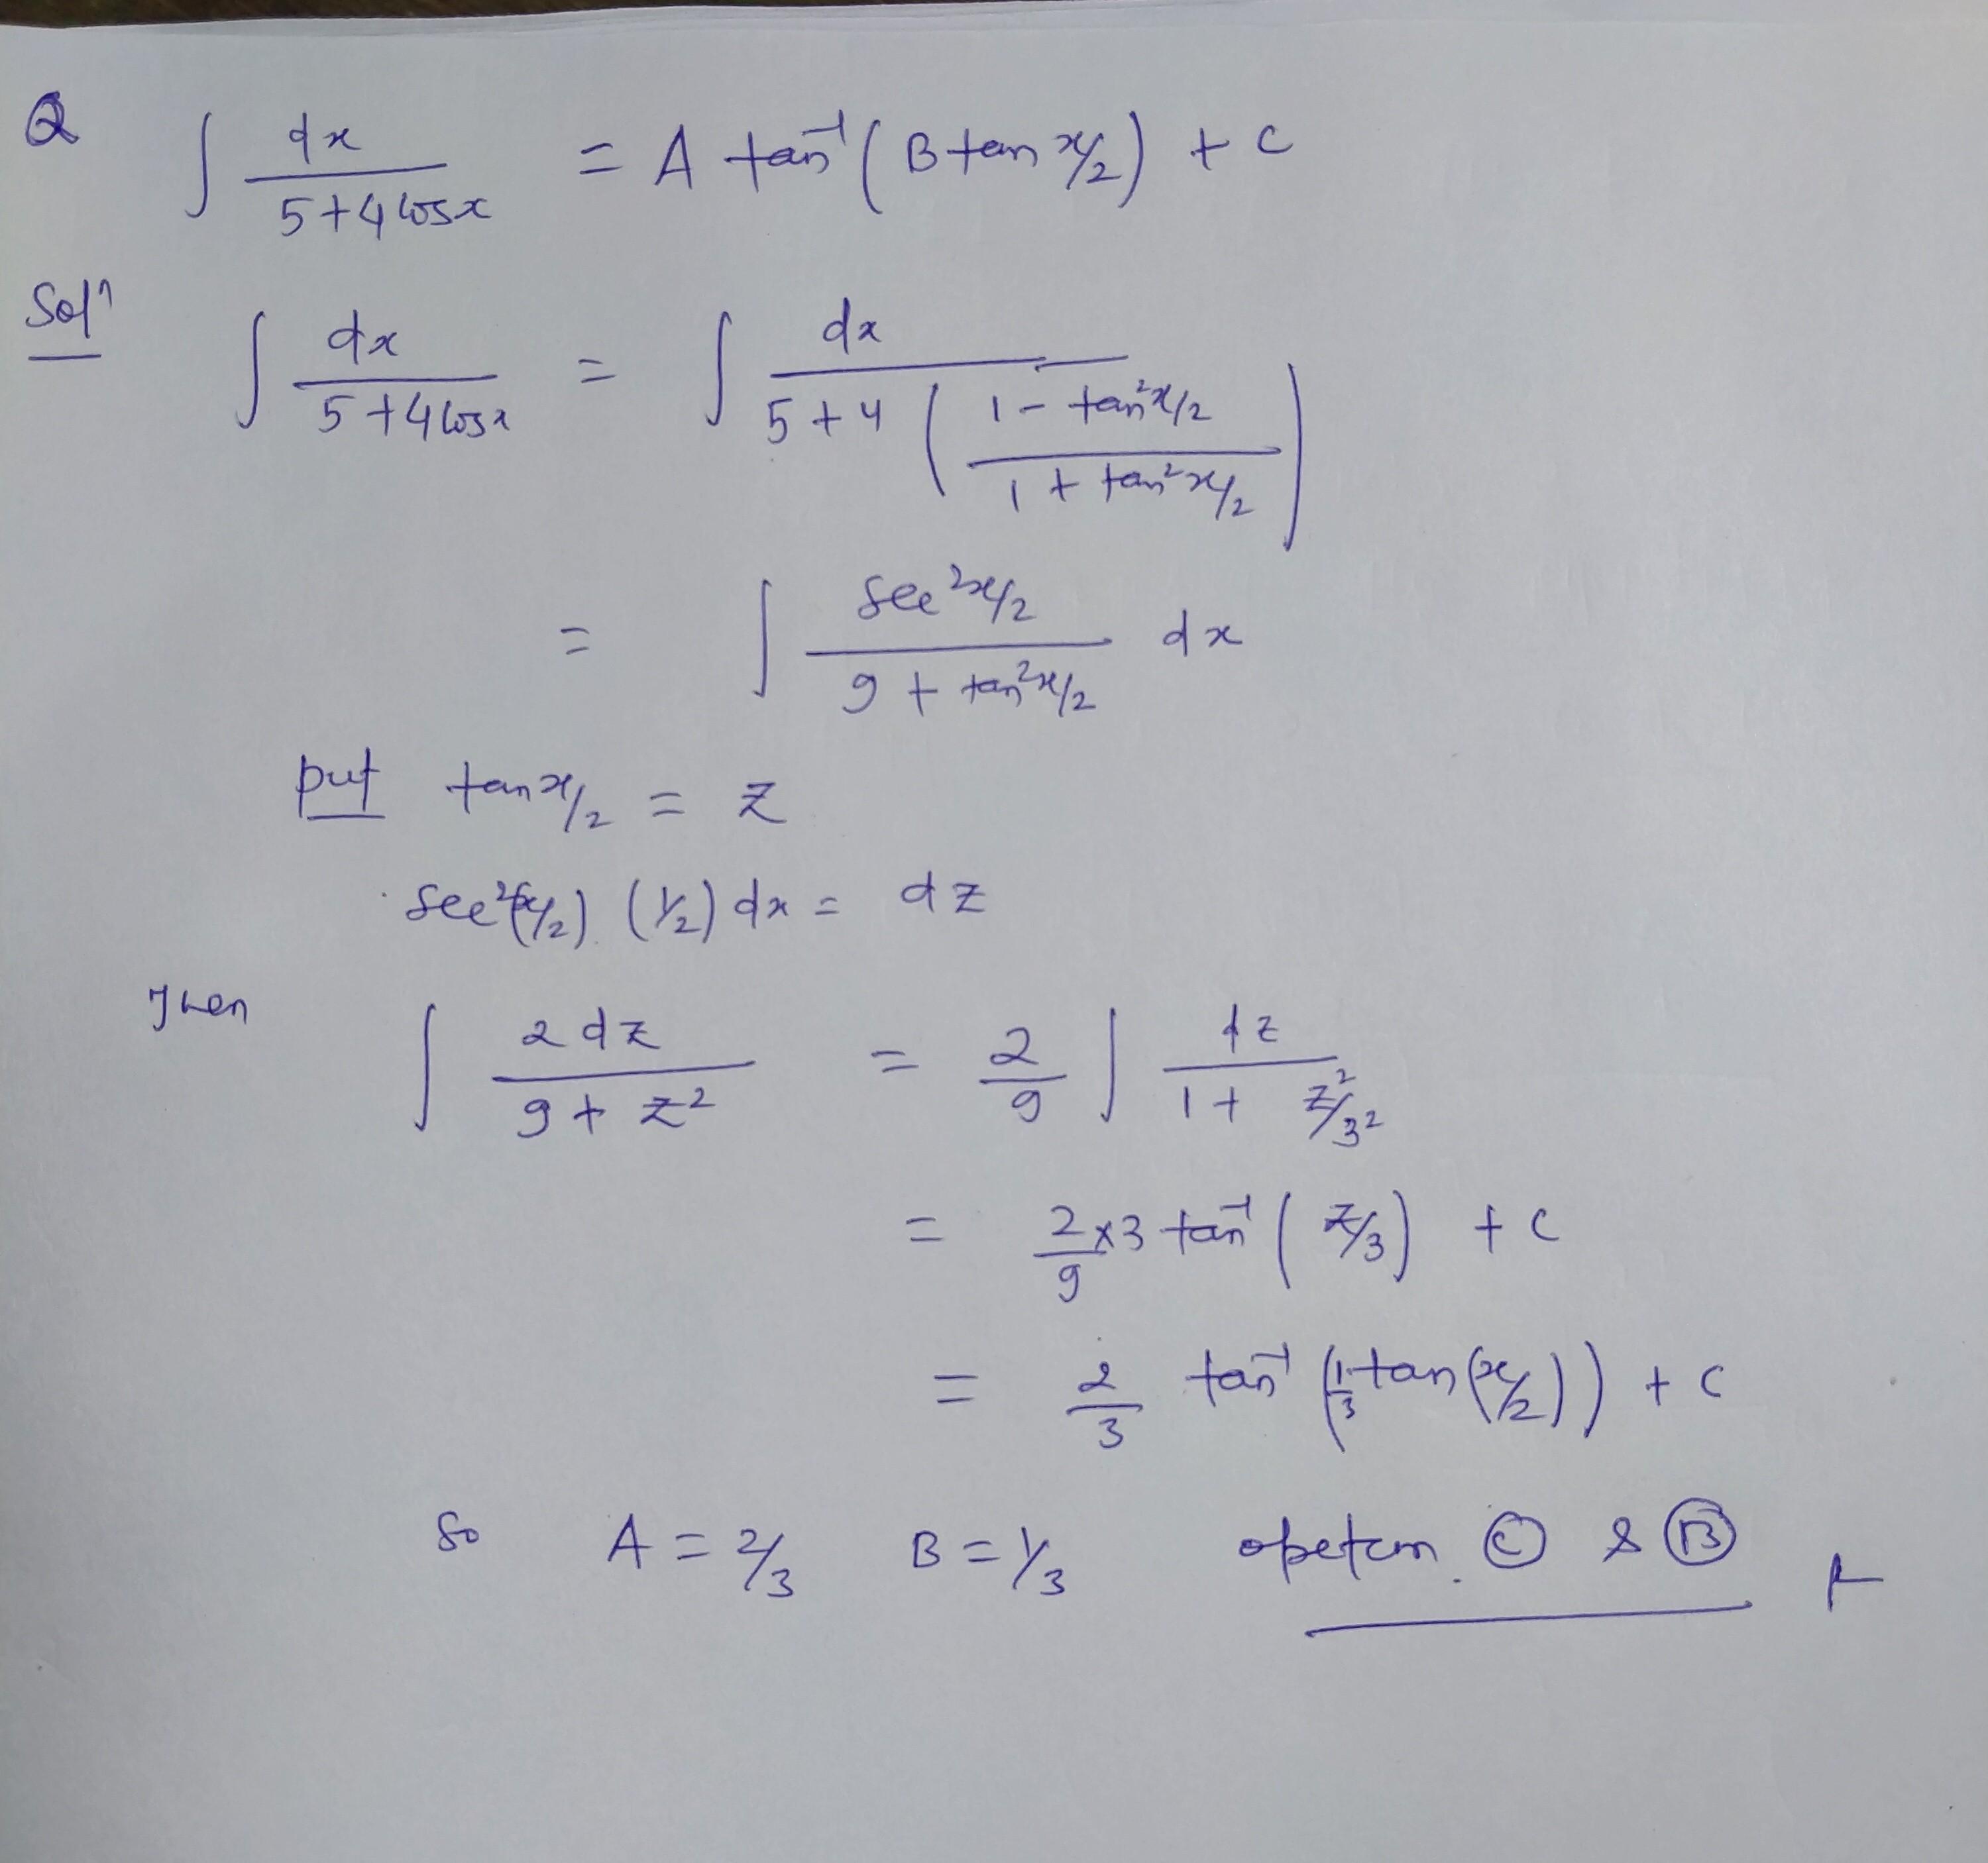 Q ∫ dx / (5+4cosx) = A tan⁻¹ (B tan x/2) + c
Solⁿ ∫ dx / (5+4cosx) = ∫ dx / (5+4 ( (1 - tan²x/2) / (1 + tan²x/2) ))
= ∫ sec²x/2 / (9 + tan²x/2) dx
put tan x/2 = z
sec²(x/2) (1/2) dx = dz
Then ∫ 2dz / (9 + z²) = 2/9 ∫ dz / (1 + z²/3²)
= 2/9 x3 tan⁻¹ ( z/3 ) + c
= 2/3 tan⁻¹ (1/3 tan (x/2)) + c
So A = 2/3 B = 1/3 Ⓒ & Ⓑ